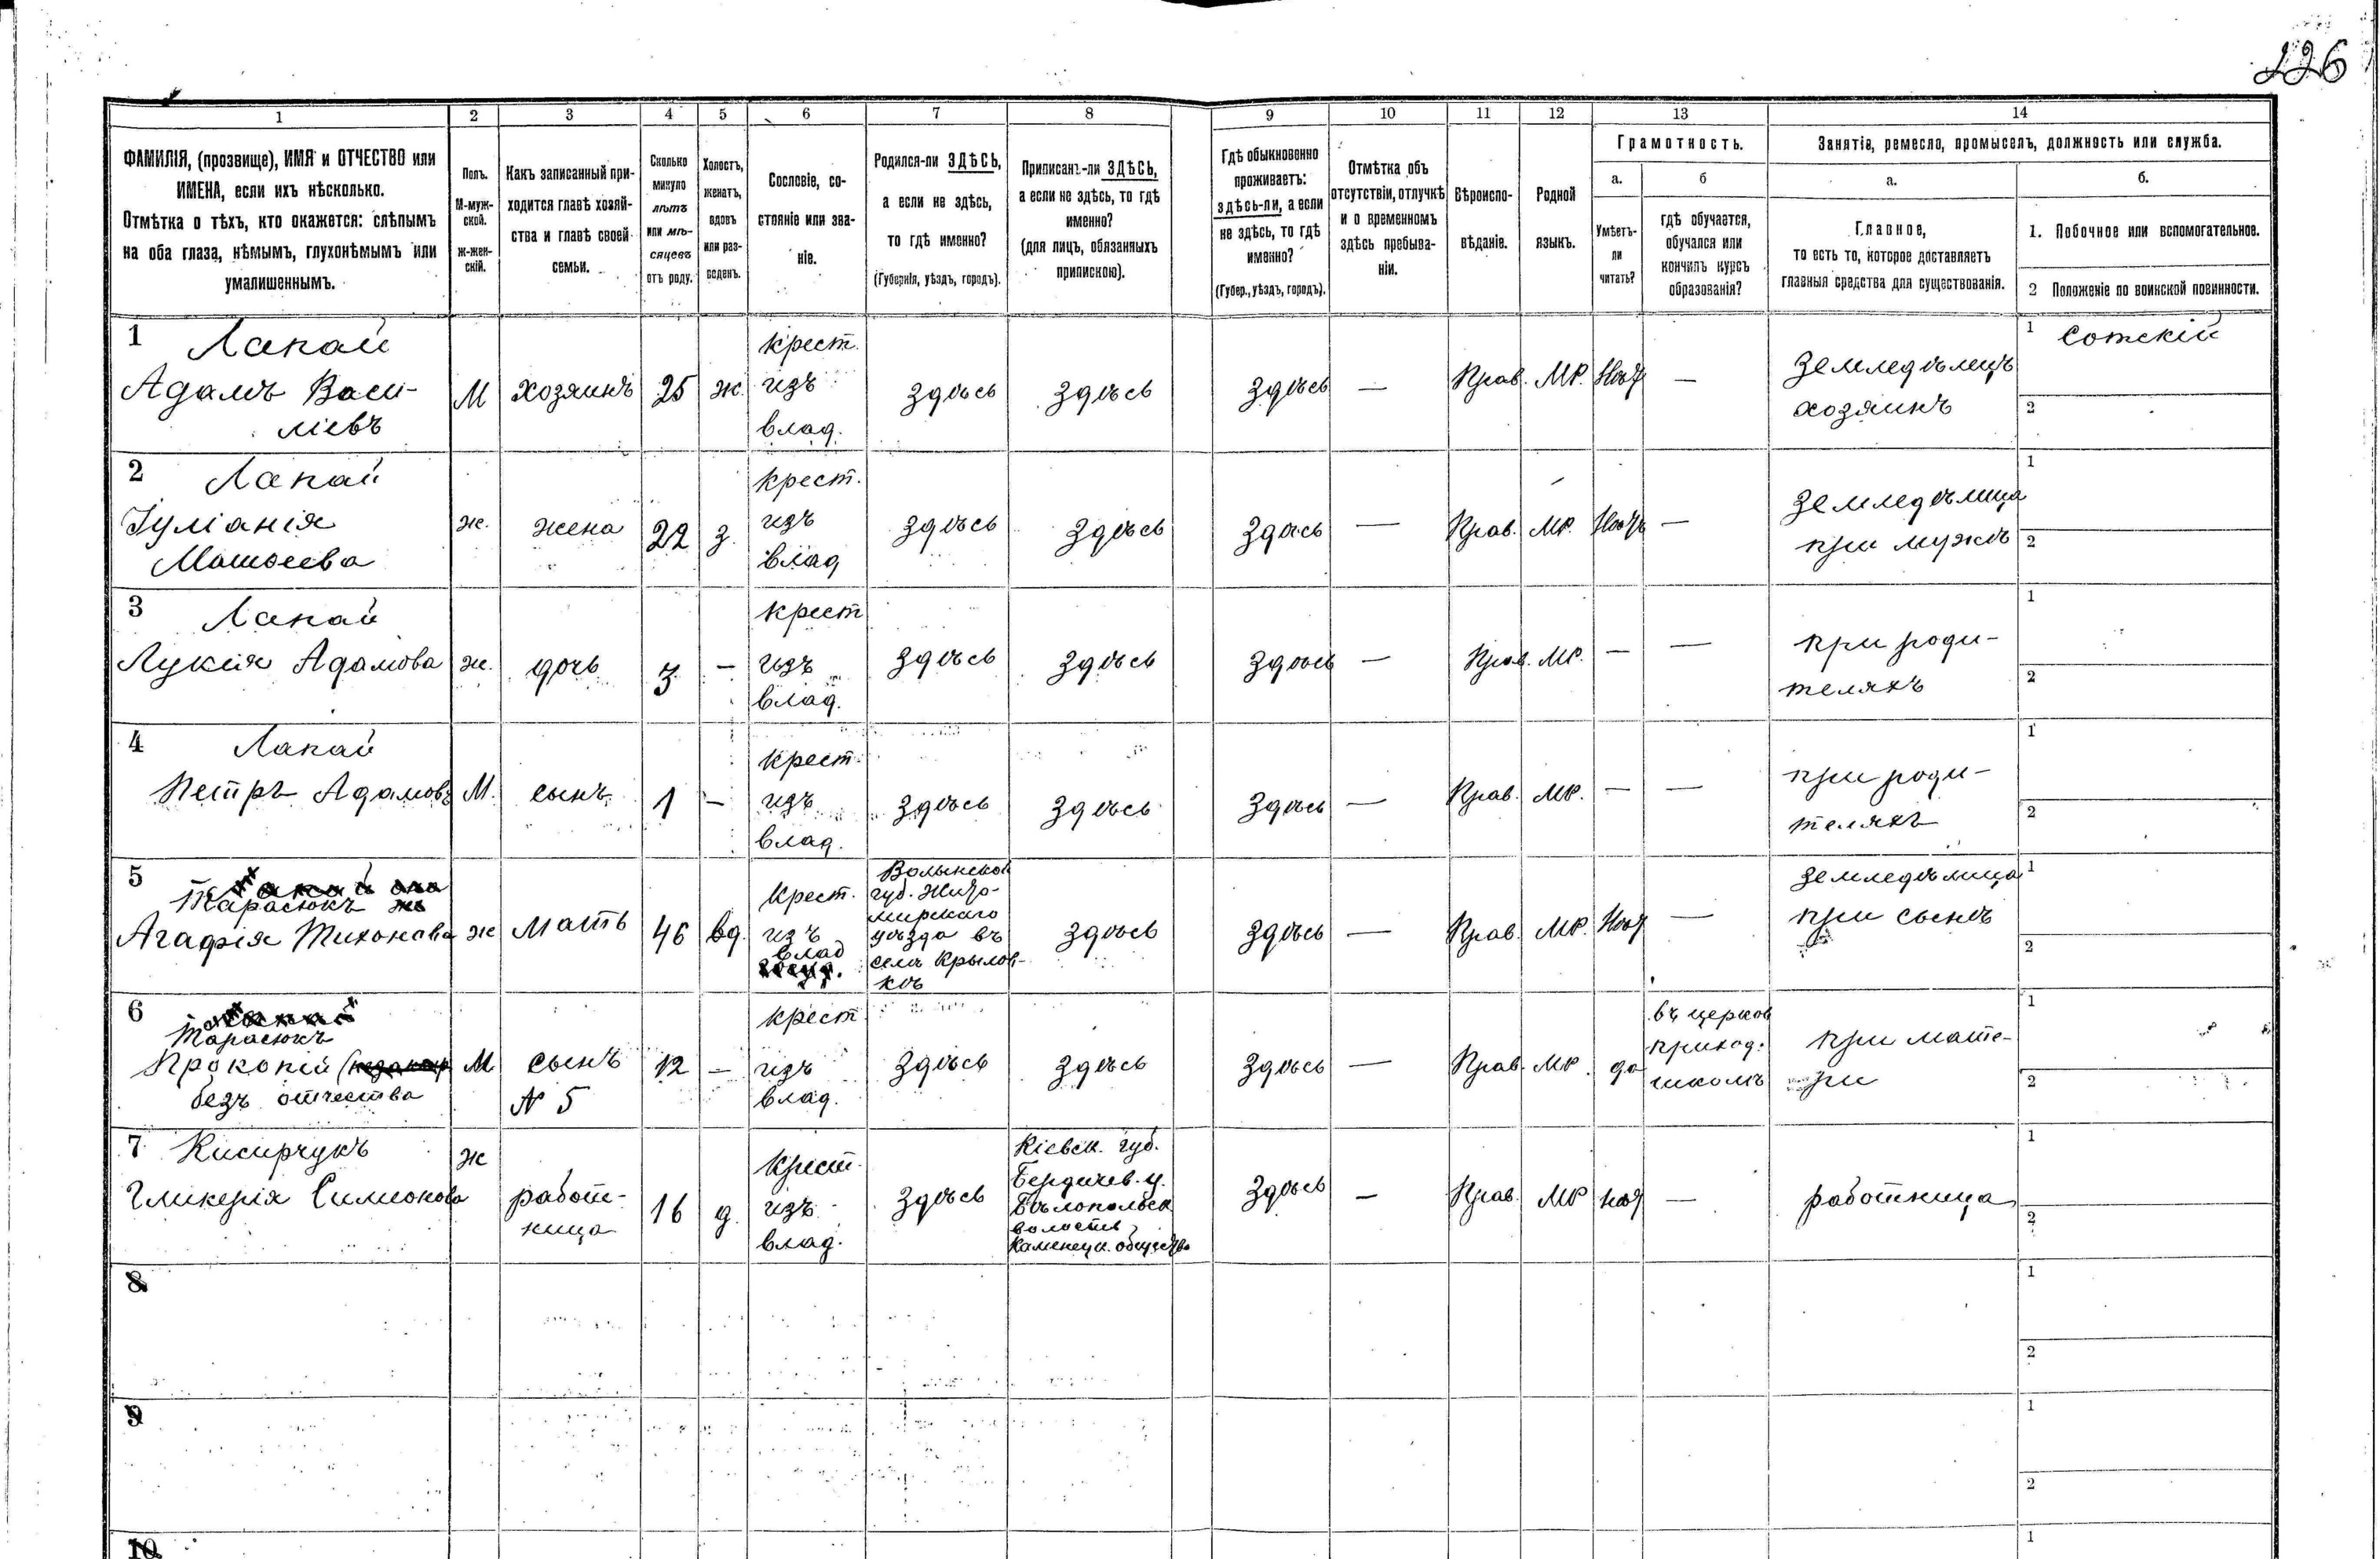 226
1 2 3 4 5 6 7 8 9 10 11 12 13 14
ФАМИЛІЯ, (прозвище), ИМЯ и ОТЧЕСТВО или
ИМЕНА, если ихъ нѣсколько.
Отмѣтка о тѣхъ, кто окажется: слѣпымъ
на оба глаза, нѣмымъ, глухонѣмымъ или
умалишеннымъ.
Полъ.
М-муж-
ской.
ж-жен-
скій.
Какъ записанный при-
ходится главѣ хозяй-
ства и главѣ своей
семьи.
Сколько
минуло
лѣтъ
или мѣ-
сяцевъ
отъ роду.
Холостъ,
женатъ,
вдовъ
или раз-
веденъ.
Сословіе, со-
стояніе или зва-
ніе.
Родился-ли ЗДѢСЬ,
а если не здѣсь,
то гдѣ именно?
(Губернія, уѣздъ, городъ).
Приписанъ-ли ЗДѢСЬ,
а если не здѣсь, то гдѣ
именно?
(для лицъ, обязанныхъ
припискою).
Гдѣ обыкновенно
проживаетъ:
здѣсь-ли, а если
не здѣсь, то гдѣ
именно?
(Губер., уѣздъ, городъ).
Отмѣтка объ
отсутствіи, отлучкѣ
и о временномъ
здѣсь пребыва-
ніи.
Вѣроиспо-
вѣданіе.
Родной
языкъ.
Грамотность.
а.
Умѣетъ-
ли
читать?
б
гдѣ обучается,
обучался или
кончилъ курсъ
образованія?
Занятіе, ремесло, промыселъ, должность или служба.
а.
Главное,
то есть то, которое доставляетъ
главныя средства для существованія.
б.
1. Побочное или вспомогательное.
2 Положеніе по воинской повинности.
1 Лапай
Адамъ Васи-
ліевъ
М
хозяинъ
25
ж.
крест.
изъ
влад.
здѣсь
здѣсь
здѣсь
—
Прав.
МР.
Нѣт
—
Земледѣлецъ
хозяинъ
1 Сотскій
2
2 Лапай
Іуліанія
Матѳеева
ж.
жена
22
з.
крест.
изъ
влад
здѣсь
здѣсь
здѣсь
—
Прав.
МР.
Нѣтъ
—
Земледѣлица
при мужѣ
1
2
3 Лапай
Лукія Адамова
ж.
дочь
3
—
крест
изъ
влад.
здѣсь
здѣсь
здѣсь
—
Прав.
МР.
—
—
при роди-
теляхъ
1
2
4 Лапай
Петръ Адамовъ
М.
сынъ
1
—
крест.
изъ
влад.
здѣсь
здѣсь
здѣсь
—
Прав.
МР.
—
—
при роди-
теляхъ
1
2
5
Тарасюкъ
Агафія Тихонова
ж
мать
46
вд.
крест.
изъ
влад
Волынской
губ. Жито-
мирскаго
уѣзда въ
селѣ Крылов-
кѣ
здѣсь
здѣсь
—
Прав.
МР.
Нѣт
—
земледѣлица
при сынѣ
1
2
6
Тарасюкъ
Прокопій
безъ отчества
М
сынъ
№ 5
12
—
крест
изъ
влад.
здѣсь
здѣсь
здѣсь
—
Прав.
МР.
да
въ церков
приход.
школѣ
при мате-
ри
1
2
7
Гликерія Симионова
ж
работ-
ница
16
д.
крест.
изъ
влад.
здѣсь
Кіевск. губ.
Бердичев. у.
Бѣлопольск
волости
Каменецк. общества
здѣсь
—
Прав.
МР
нѣт
—
работница
1
2
8
1
2
9
1
2
10
1